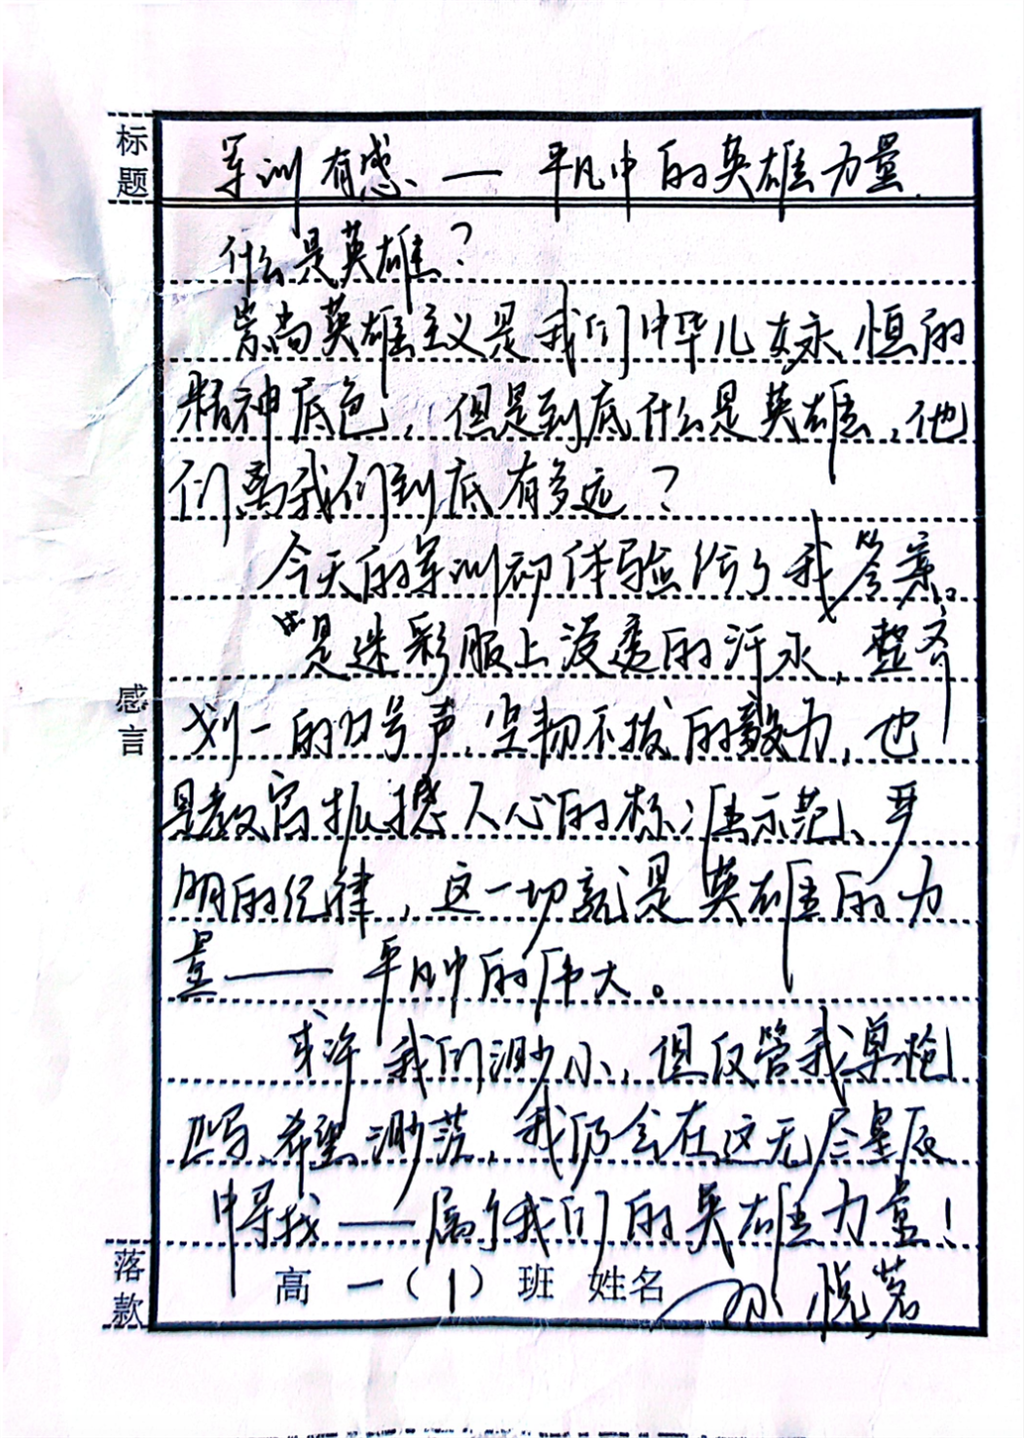 标题
军训有感 — 平凡中的英雄力量
什么是英雄？
崇尚英雄主义是我们中华儿女永恒的
精神底色，但是到底什么是英雄，他
们离我们到底有多远？
今天的军训初体验给了我答案。
是迷彩服上浸透的汗水，整齐
划一的口号声，坚韧不拔的毅力，也
是教官振撼人心的标准示范、严
明的纪律，这一切就是英雄的力
量——平凡中的伟大。
感言
或许我们渺小，但仅管我单枪
匹马、希望渺茫，我仍会在这无尽星辰
中寻找——属于我们的英雄力量！
落款
高一（1）班 姓名 悦茗